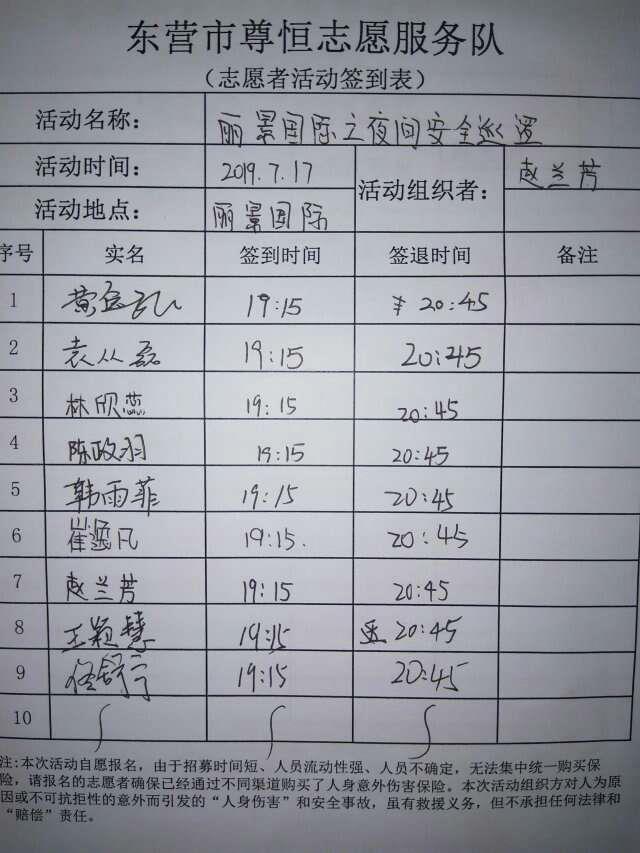 东营市尊恒志愿服务队
（志愿者活动签到表）
活动名称： 丽景国际之夜间安全巡逻
活动时间： 2019.7.17 活动组织者： 赵兰芳
活动地点： 丽景国际
序号 实名 签到时间 签退时间 备注
1 19:15 20:45
2 袁从磊 19:15 20:45
3 林欣蕊 19:15 20:45
4 陈政羽 19:15 20:45
5 韩雨菲 19:15 20:45
6 崔逸凡 19:15. 20:45
7 赵兰芳 19:15 20:45
8 王颖慧 19:15 20:45
9 19:15 20:45
10
注:本次活动自愿报名，由于招募时间短、人员流动性强、人员不确定，无法集中统一购买保
险，请报名的志愿者确保已经通过不同渠道购买了人身意外伤害保险。本次活动组织方对人为原
因或不可抗拒性的意外而引发的“人身伤害”和安全事故，虽有救援义务，但不承担任何法律和
“赔偿”责任。